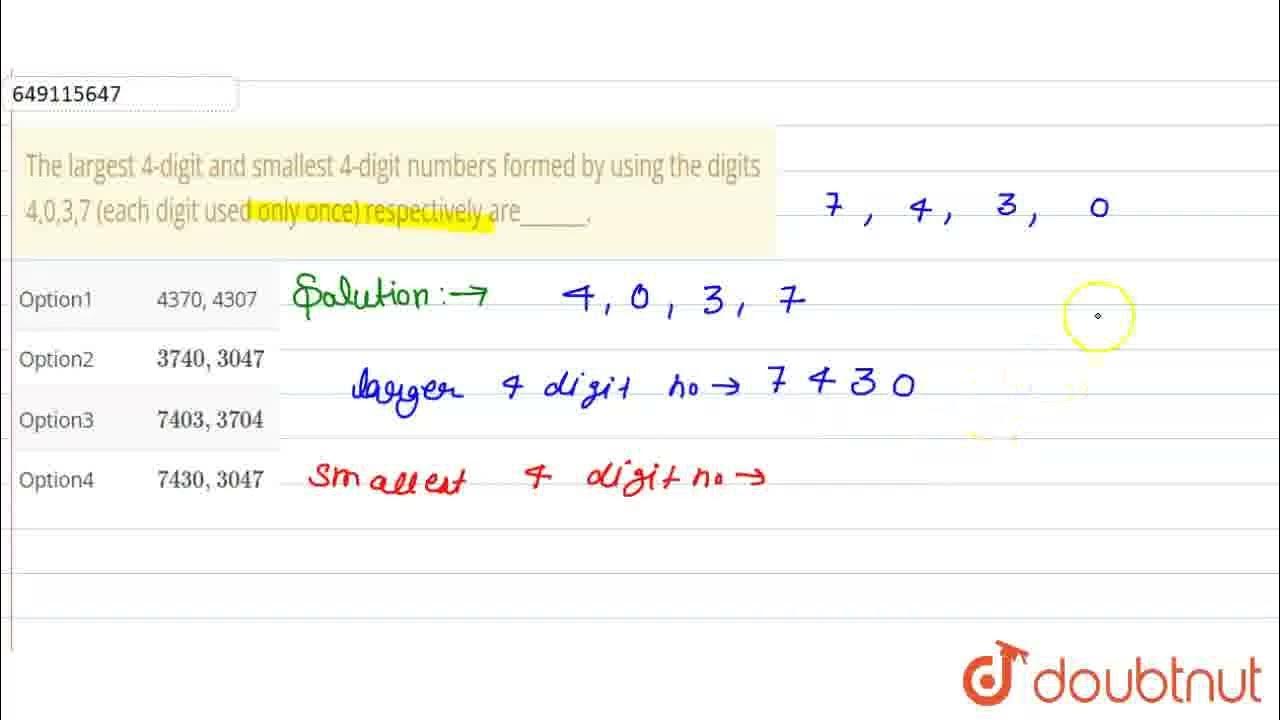 649115647
The largest 4-digit and smallest 4-digit numbers formed by using the digits
4,0,3,7 (each digit used only once) respectively are______.
7, 4, 3, 0
Option1 4370, 4307
Solution:→ 4, 0, 3, 7
Option2 3740, 3047
larger 4 digit no → 7 4 3 0
Option3 7403, 3704
Option4 7430, 3047
Smallest 4 digit no →
doubtnut